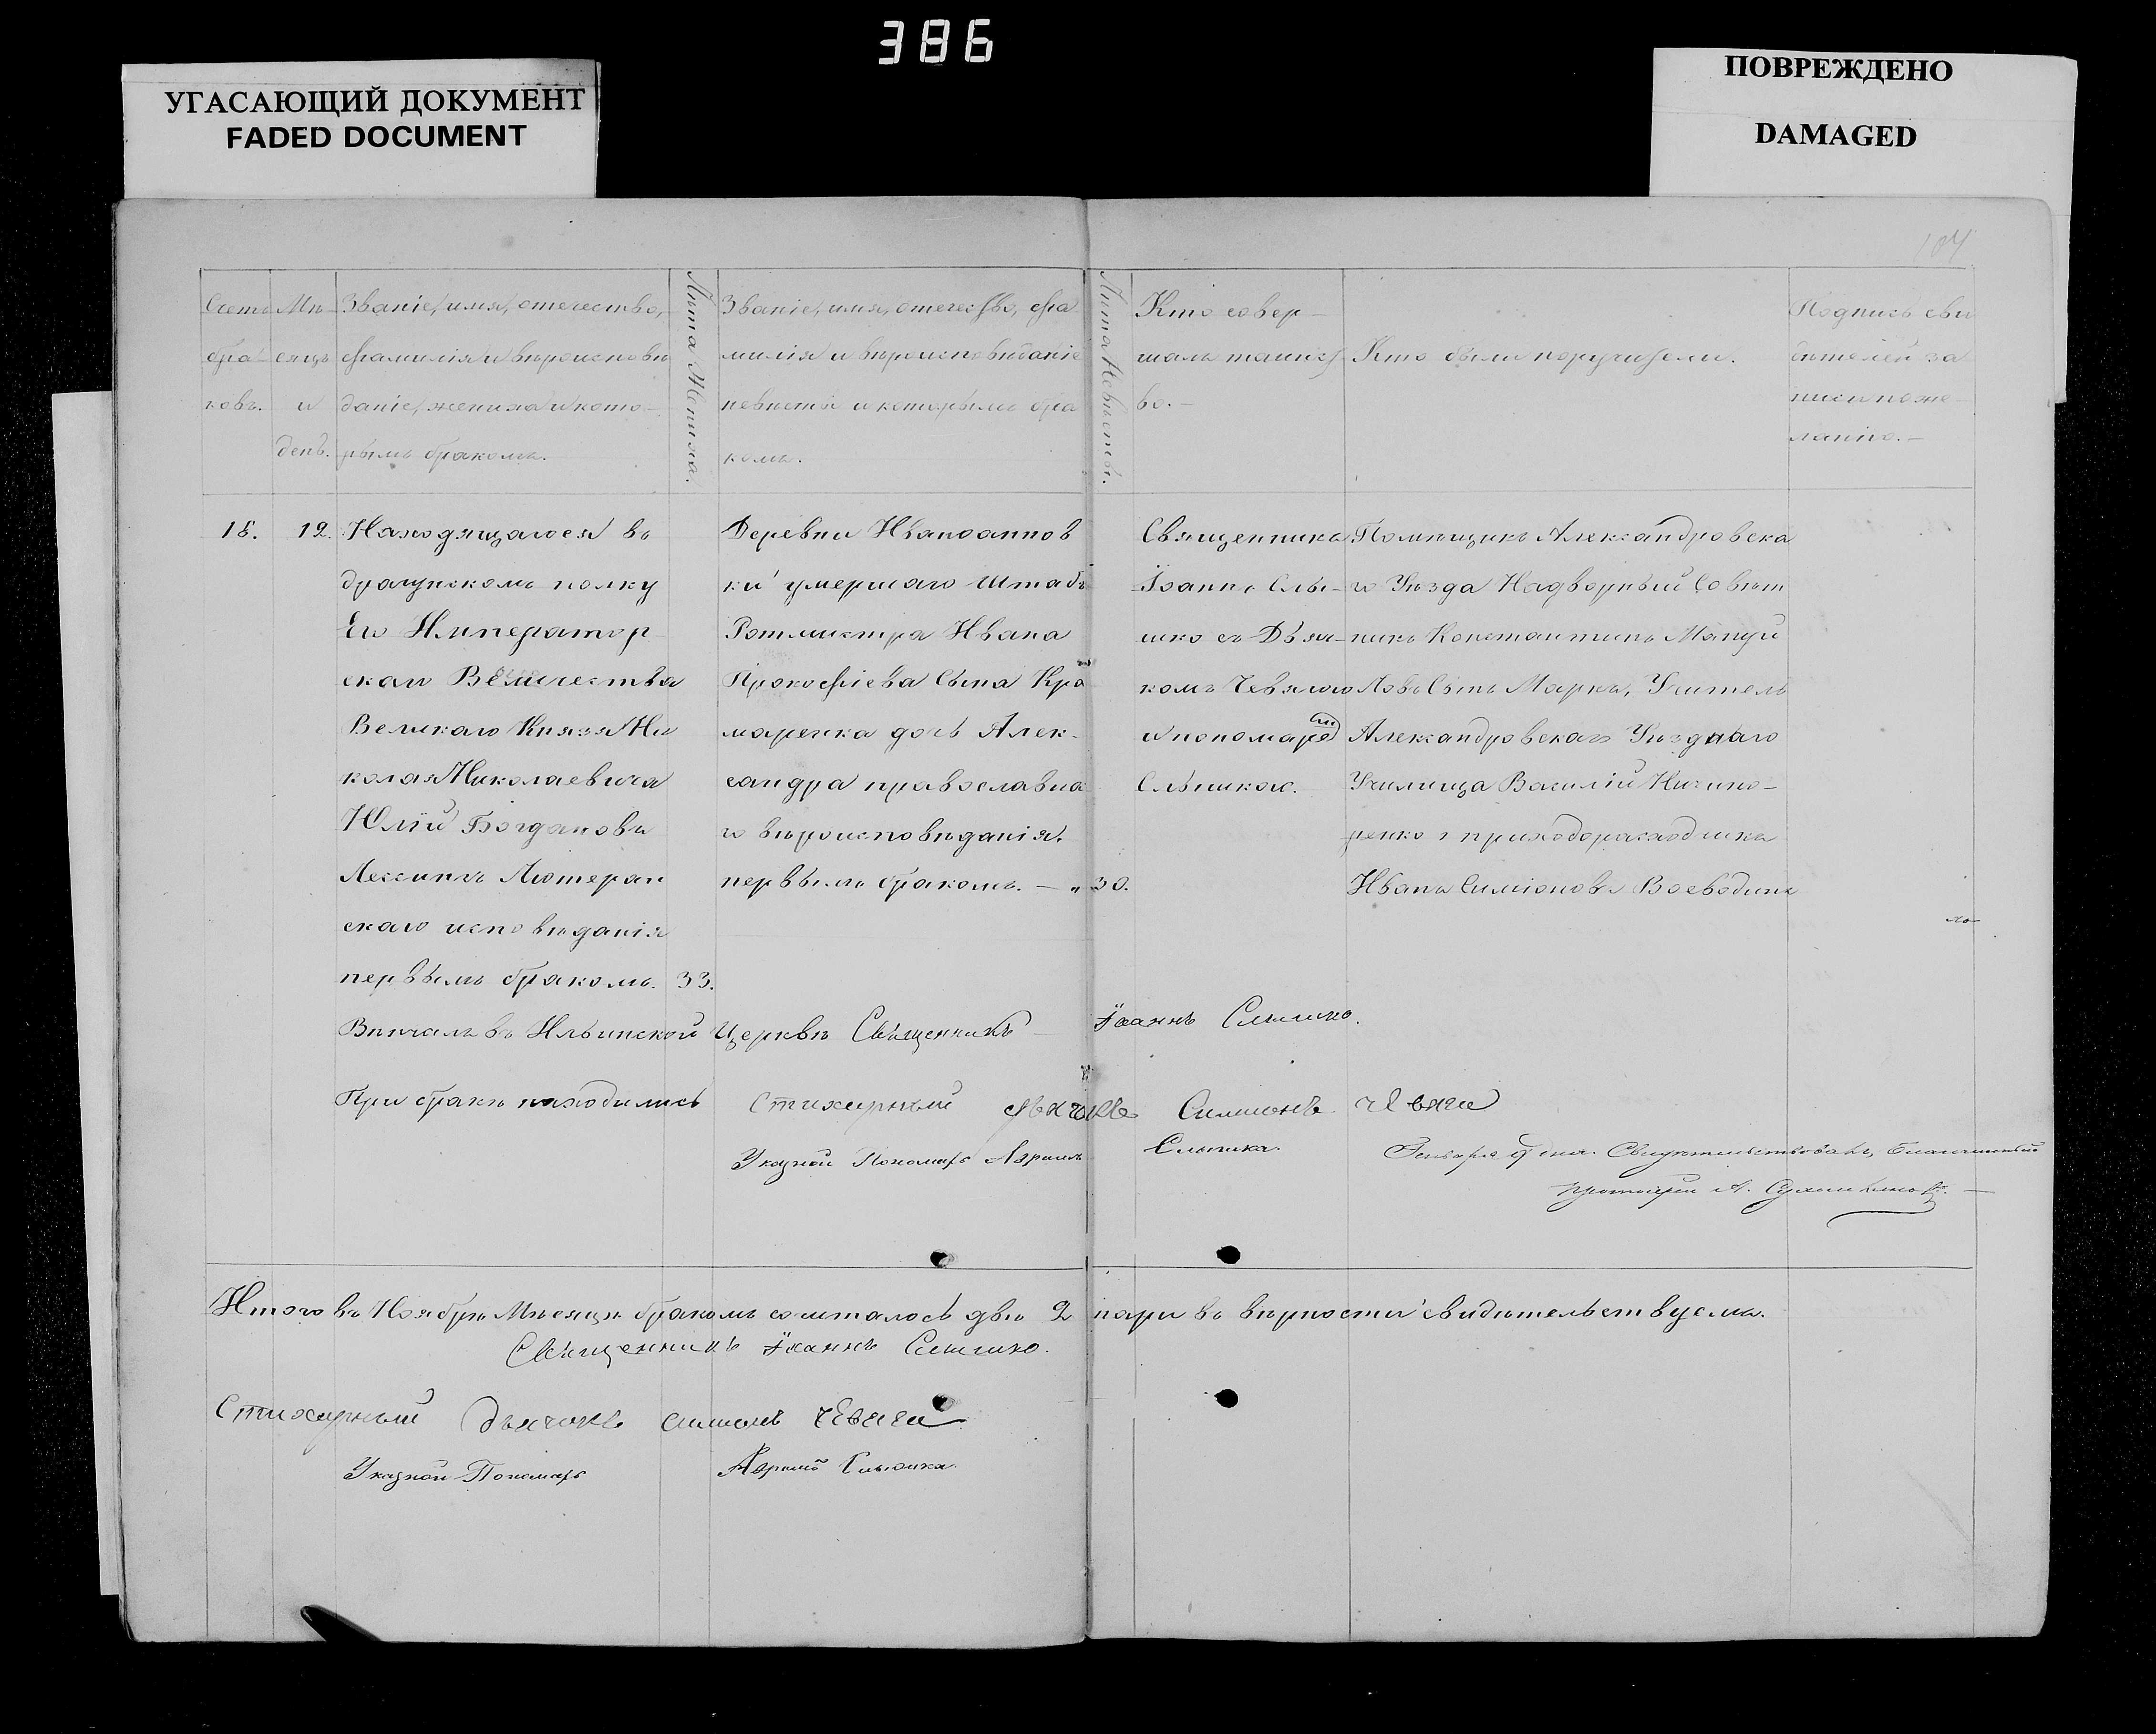 386
УГАСАЮЩИЙ ДОКУМЕНТ
FADED DOCUMENT
ПОВРЕЖДЕНО
DAMAGED
Счетъ
бра-
ковъ.
Мѣ-
сяцъ
и
день.
Званіе, имя, отечество,
фамилія и вѣроисповѣ
даніе, жениха и кото-
рымъ бракомъ.
Лѣта Жениха.
Званіе, имя, отечество, фа
милія и вѣроисповѣданіе
невѣсты и которымъ бра
комъ.
Лѣта Невѣсты.
Кто совер-
шалъ таинст
во.-
Кто были поручители.
Подпись сви
дѣтелей за
писи по же-
ланію.-
18.
12.
Находящагося въ
драгунскомъ полку
Его Император
скаго Величества
Великаго Князя Ни
колая Николаевича
Юлій Богдановъ
Лессингъ Лютеран
скаго исповѣданія
первымъ бракомъ.
33.
Деревни Иваноаннов
ки умершаго Штабъ
Ротмистра Ивана
Прокофіева Сына Кра
маренка дочь Алек-
сандра православна
го вѣроисповѣданія.
первымъ бракомъ. — "
30.
Священника
Іоаннъ Слы-
шко съ Дьяч-
комъ Чевягою
и пономаре
Слынкою.
Помѣщикъ Александровска
го Уѣзда Надворный Совѣт
никъ Константинъ Мануй
ловъ Сынъ Марка, Учитель
Александровскаго Уѣзднаго
Училища Василій Ничипо-
ренко и приходорасходчика
Иванъ Симіоновъ Воеводинъ
Вѣнчалъ въ Ильинской Церквѣ Священникъ Іоаннъ Слышко.
При бракѣ находились Стихарный дьячокъ Симионъ Чевяга
Указной Пономарь Слынка.
Генваря 9 дня. Свидѣтельствовалъ, Благочинный
протоіерей А.
Итого въ Ноябрѣ Мѣсяцѣ бракомъ сочиталось двѣ 2 пари въ вѣрности свидѣтельствуемъ.
Священникъ Іоаннъ Слышко.
Стихарный дьячокъ Симионъ Чевяга
Указной Пономарь Слынка.